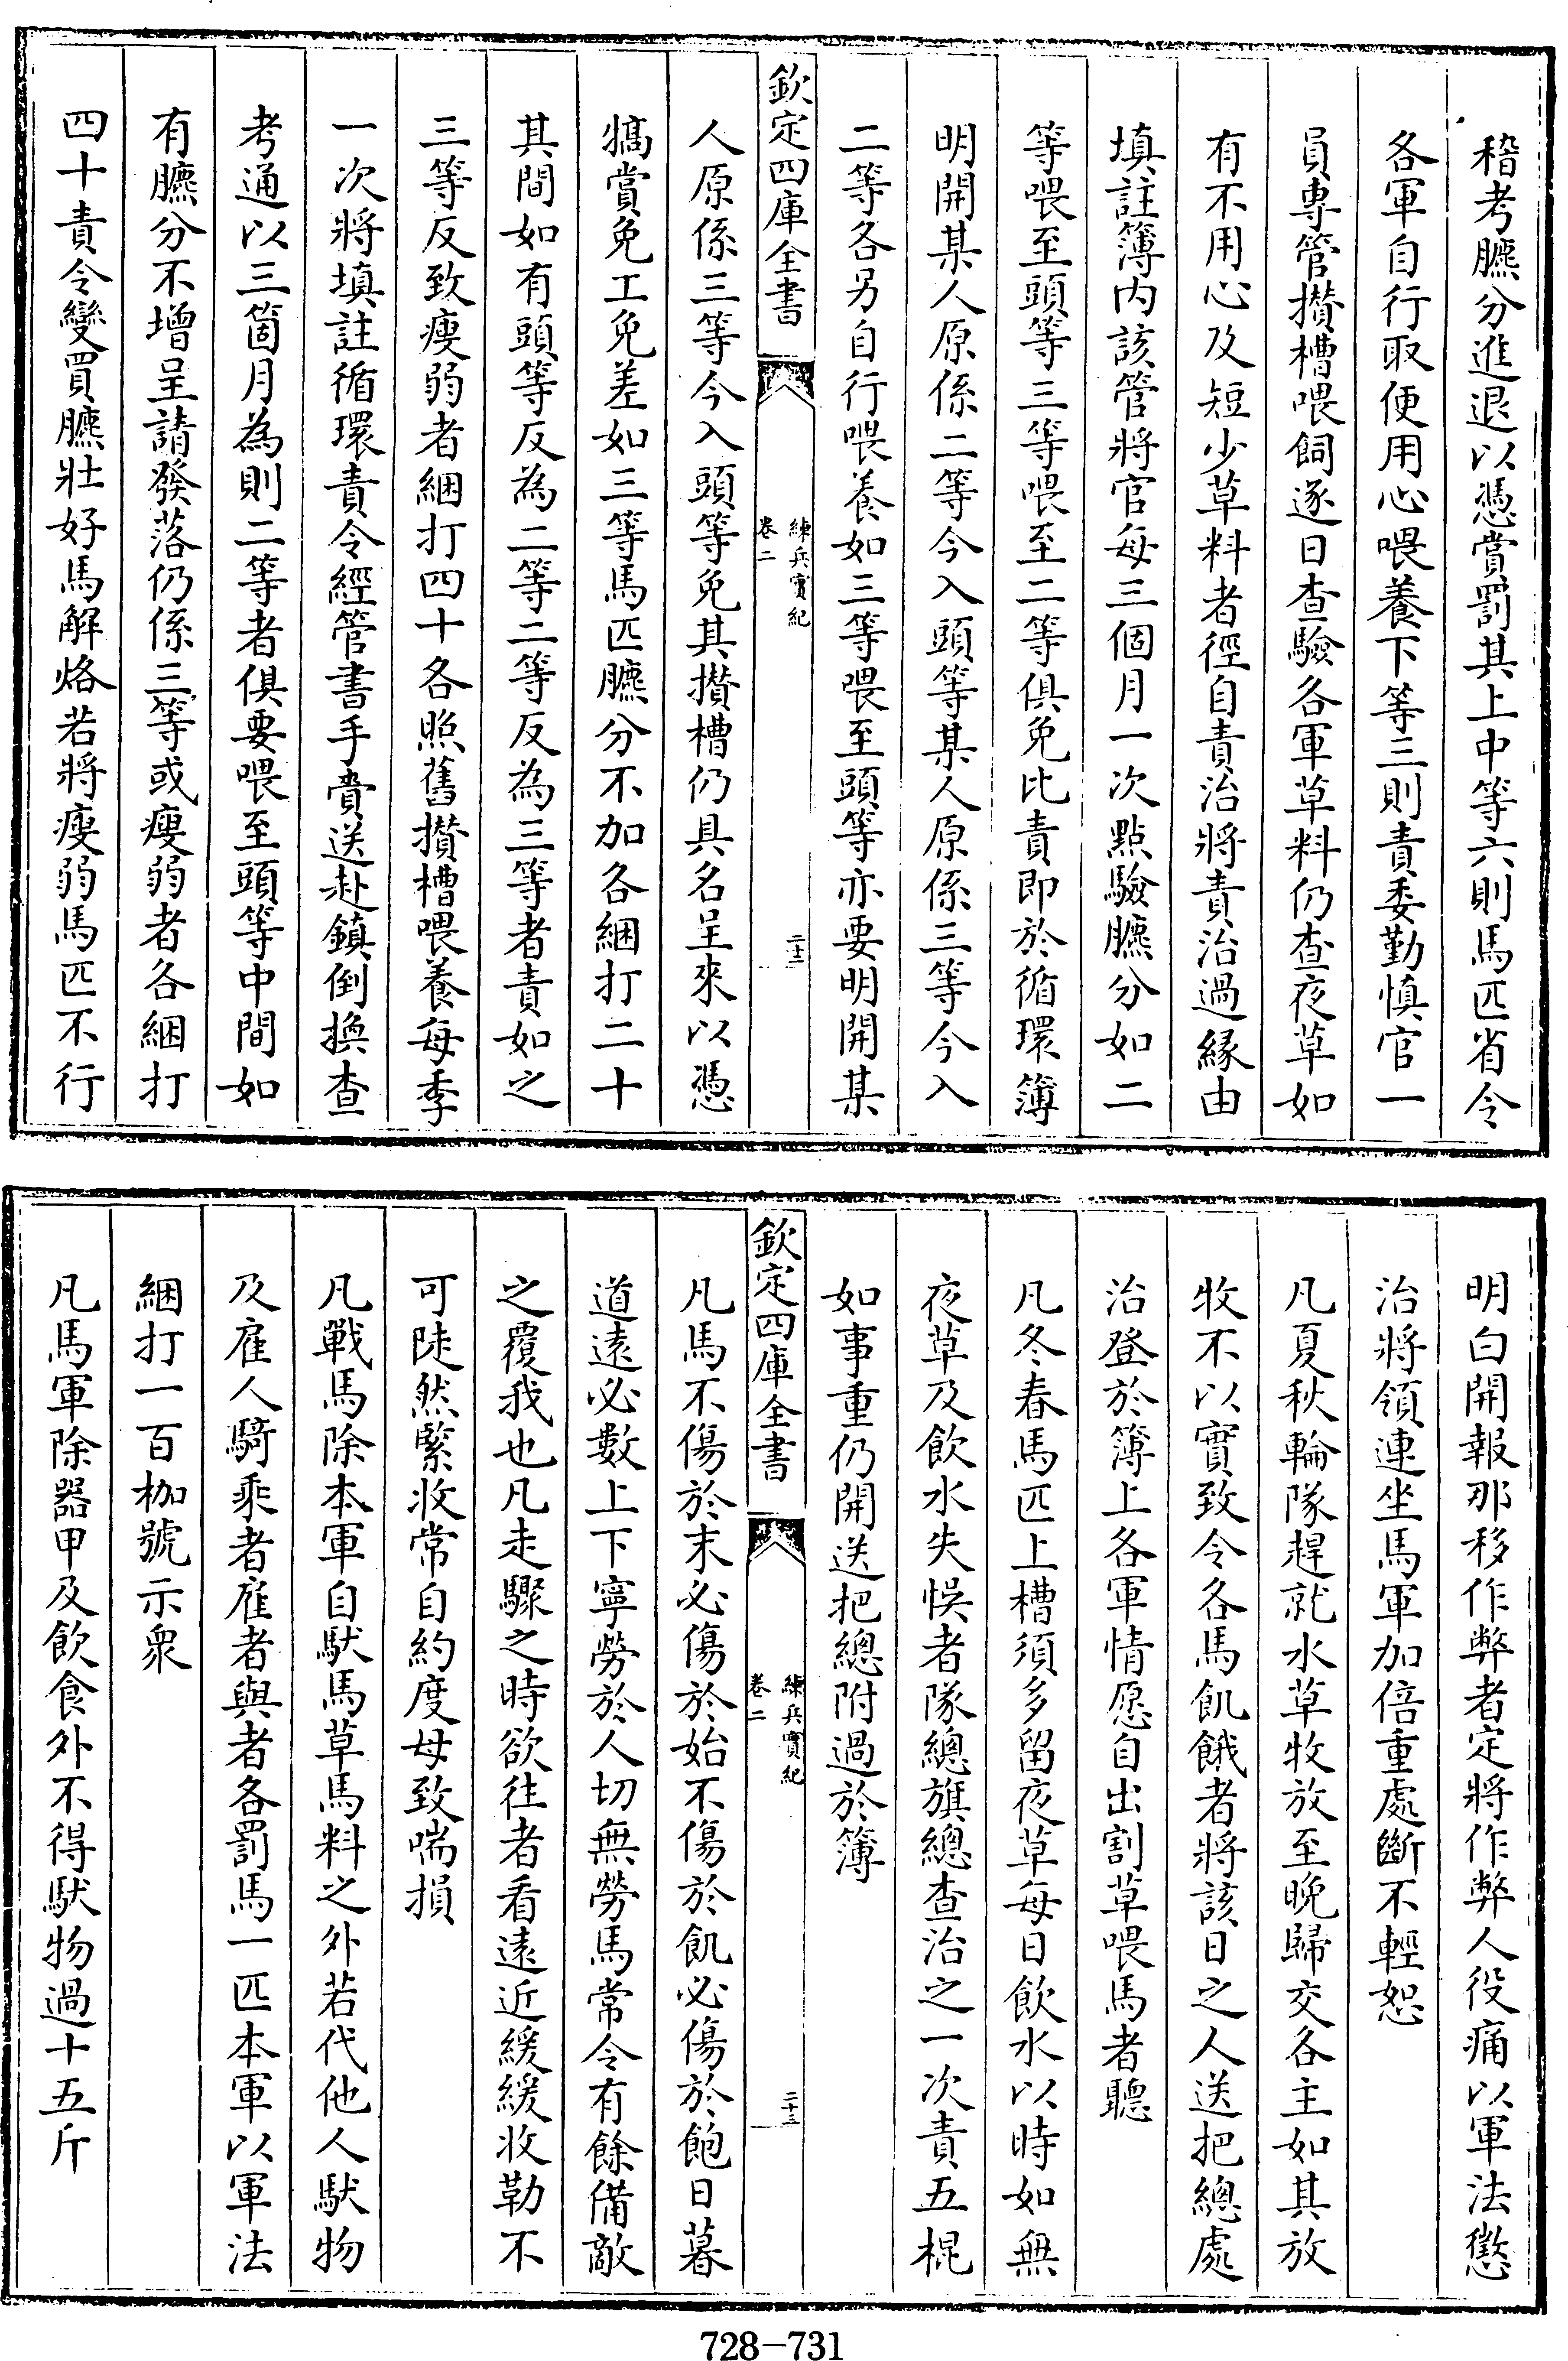 稽考臕分進退以憑賞罰其上中等六則馬匹省令
各軍自行取便用心喂養下等三則責委勤慎官一
員專管攅槽喂飼逐日查驗各軍草料仍查夜草如
有不用心及短少草料者徑自責治將責治過緣由
填註簿内該管將官每三個月一次點驗臕分如二
等喂至頭等三等喂至二等俱免比責即於循環簿
明開某人原係二等今入頭等某人原係三等今入
二等各另自行喂養如三等喂至頭等亦要明開某
欽定四庫全書
練兵實紀
卷二
二十二
人原係三等今入頭等免其攅槽仍具名呈來以憑
犒賞免工免差如三等馬匹臕分不加各綑打二十
其間如有頭等反為二等二等反為三等者責如之
三等反致瘦弱者綑打四十各照舊攅槽喂養每季
一次將填註循環責令經管書手賫送赴鎮倒換查
考通以三箇月為則二等者俱要喂至頭等中間如
有臕分不增呈請發落仍係三等或瘦弱者各綑打
四十責令變買臕壯好馬解烙若將瘦弱馬匹不行
明白開報那移作弊者定將作弊人役痛以軍法懲
治將領連坐馬軍加倍重處斷不輕恕
凡夏秋輪隊趕就水草牧放至晚歸交各主如其放
牧不以實致令各馬飢餓者將該日之人送把總處
治登於簿上各軍情愿自出割草喂馬者聽
凡冬春馬匹上槽須多留夜草每日飲水以時如無
夜草及飲水失悞者隊總旗總查治之一次責五棍
如事重仍開送把總附過於簿
欽定四庫全書
練兵實紀
卷二
二十三
凡馬不傷於末必傷於始不傷於飢必傷於飽日暮
道遠必數上下寧勞於人切無勞馬常令有餘備敵
之覆我也凡走驟之時欲往者看遠近緩緩收勒不
可陡然緊收常自約度毋致喘損
凡戰馬除本軍自馱馬草馬料之外若代他人馱物
及雇人騎乘者雇者與者各罰馬一匹本軍以軍法
綑打一百枷號示衆
凡馬軍除器甲及飲食外不得馱物過十五斤
728-731